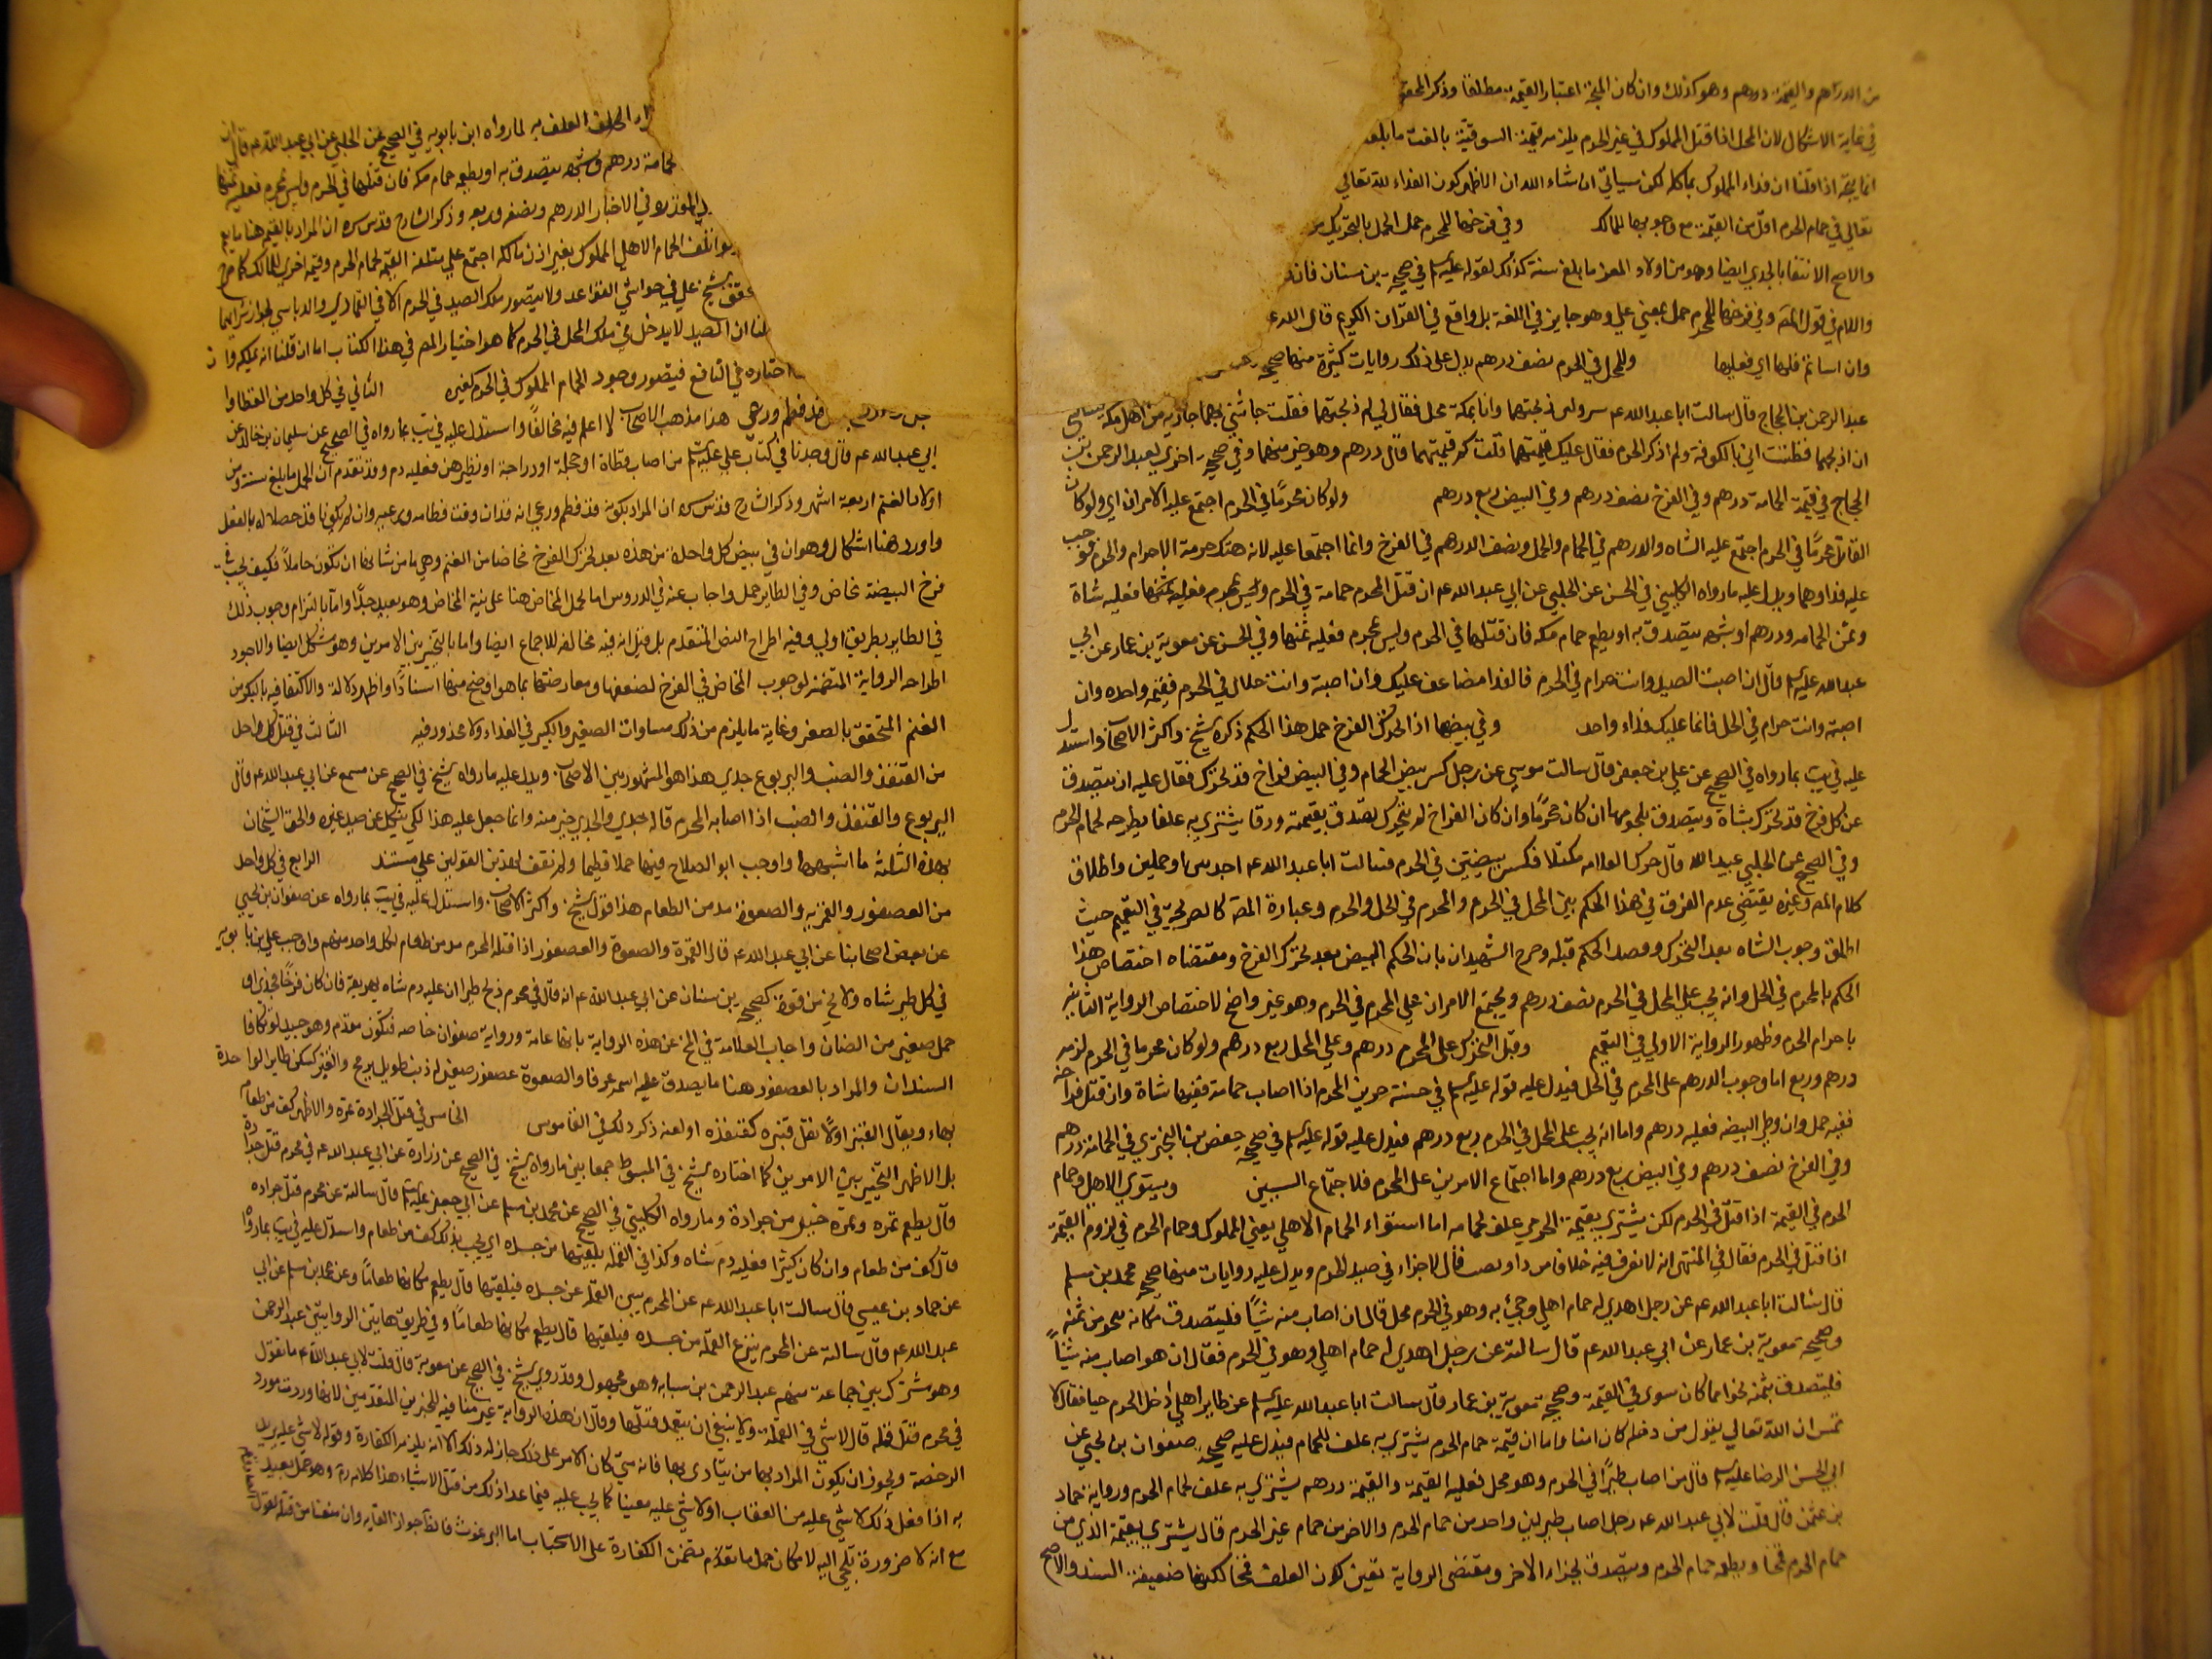 من الدراهم والقيمة درهم وهو كذلك وان كان المتجه اعتبار القيمة مطلقا وذكر المحقق
في غاية الاشكال لان المحل اذا قتل المملوك في غير الحرم يلزمه قيمته السوقية بالغة ما بلغت
انما يتجه اذا قلنا ان فداء المملوك لمالكه لكن سياتي ان شاء الله ان الاظهر كون الفداء لله تعالى
تعالى في حمام الحرم اقل من القيمة مع وجوبها للمالك وفي فرخها للمحرم حمل الحمل بالتحريك
والاصح الاكتفا بالجدي ايضا وهو من اولاد المعز ما بلغ سنة كذلك لقوله عليه السلم في صحيحة بن سنان فان
واللام في قول المص وفي فرخها للمحرم حمل بمعنى على وهو جايز في اللغة بل واقع في القران الكريم قال الله
وان اساتم فلها اي فعليها وللمحل في الحرم نصف درهم يدل على ذلك روايات كثيرة منها صحيحة
عبد الرحمن بن الحجاج قال سالت ابا عبد الله ع عن ذبحتهما وانا بمكة محل فقال لي لم ذبحتهما فقلت جائتني بهما جارية من اهل مكة
ان اذبحهما فظننت اني بالكوفة ولم اذكر الحرم فقال عليك قيمتهما قلت كم قيمتهما قال درهم وهو خير منهما وفي صحيحة اخرى لعبد الرحمن بن
الحجاج في قيمة الحمامة درهم وفي الفرخ نصف درهم وفي البيض ربع درهم ولو كان محرما في الحرم اجتمع عليه الامران اي ولو كان
القاتل محرما في الحرم اجتمع عليه الشاه والدرهم في الحمام والحمل ونصف الدرهم في الفرخ وانما اجتمعا عليه لانه هتك حرمة الاحرام والحرم فوجب
عليه فداوهما ويدل عليه ما رواه الكليني في الحسن عن الحلبي عن ابي عبد الله ع ان قتل المحرم حمامة في الحرم فعليه شاة
وثمن الحمامه درهم او شبهه يتصدق به او يطعم حمام مكه فان قتلها في الحرم وليس بمحرم فعليه ثمنها وفي الحسن عن معوية بن عمار عن ابي
عبد الله عليه السلم قال ان اصبت الصيد وانت حرام في الحرم فالفدا مضاعف عليك وان اصبته وانت حلال في الحرم فقيمه واحده وان
اصبته وانت حرام في الحل فانما عليك فداء واحد وفي بيضها اذا تحرك الفرخ حمل هذا الحكم ذكره الشيخ واكثر الاصحاب واستدل
عليه في يب بما رواه في الصحيح عن علي بن جعفر قال سالت موسى عن رجل كسر بيض الحمام وفي البيض فراخ قد تحرك فقال عليه ان يتصدق
عن كل فرخ قد تحرك بشاة ويتصدق بلحومها ان كان محرما وان كان الفراخ لم يتحرك تصدق بقيمته ورقا يشتري به علفا يطرحه لحمام الحرم
وفي الصحيح عن الحلبي عبيد الله قال حرك الغلامه مكتلا فكسر بيضتين في الحرم فسالت ابا عبد الله ع جديين او حملين واطلاق
كلام المص وغيره يقتضي عدم الفرق في هذا الحكم بين المحل في الحرم والمحرم في الحل والحرم وعبارة المص كالصريحة في التعميم حيث
اطلق وجوب الشاه بعد التحرك وفصل الحكم قبله وصرح الشهيدان بان الحكم البيض بعد تحرك الفرخ ومقتضاه اختصاص هذا
الحكم بالمحرم في الحل وانه يجب على المحل في الحرم نصف درهم ويجتمع الامران على المحرم في الحرم وهو غير واضح لاختصاص الرواية الثانية
باحرام الحرم وظهور الرواية الاولى في التعميم وقبل التحرك على المحرم درهم وعلى المحل ربع درهم ولو كان محرما في الحرم لزمه
درهم وربع اما وجوب الدرهم على المحرم في الحل فيدل عليه قوله عليه السلم في حسنة حريز المحرم اذا اصاب حمامة ففيها شاة وان قتل فراخه
ففيه حمل وان وطى البيضه فعليه درهم واما انه يجب على المحل في الحرم ربع درهم فيدل عليه قوله عليه السلم في صحيحة حفص بن البختري في الحمامة درهم
وفي الفرخ نصف درهم وفي البيض ربع درهم واما اجتماع الامرين على المحرم فلاجتماع السببين ويستوي الاهلي وحمام
الحرم في القيمة اذا قتل في الحرم لكن يشتري بقيمة الحرمي علف لحمامه اما استواء الحمام الاهلي يعني المملوك وحمام الحرم في لزوم القيمة
اذا قتل في الحرم فقال في المنتهى انه لا نعرف فيه خلافا من داود قال لا جزاء في صيد الحرم ويدل عليه روايات منها صحيحة محمد بن مسلم
قال سئالت ابا عبد الله ع عن رجل اهدي له حمام اهلي وجيء به وهو في الحرم محل قال ان اصاب منه شيئا فليتصدق مكانه بنحو من ثمنه
وصحيحة معوية بن عمار عن ابي عبد الله ع قال سالته عن رجل اهدي له حمام اهلي وهو في الحرم فقال ان هو اصاب منه شيئا
فليتصدق بثمنه نحوا مما كان سوى في القيمة وصحيحة معوية بن عمار قال سالت ابا عبد الله عليه السلم عن طاير اهلي ادخل الحرم حيا فقال لا
تمس ان الله تعالى يقول من دخله كان امنا واما ان قيمة حمام الحرم يشتري به علف للحمام فيدل عليه صحيحة صفوان بن يحيى عن
ابي الحسن الرضا عليه السلم قال من اصاب طيرا في الحرم وهو محل فعليه القيمة والقيمة درهم يشتري به علف لحمام الحرم ورواية حماد
بن عثمن قال قلت لابي عبد الله ع رجل اصاب طيرين واحد من حمام الحرم والاخر من حمام غير الحرم قال يشتري بقيمة الذي من
حمام الحرم قمحا ويطعمه حمام الحرم ويتصدق بجزاء الاخر ومقتضى الرواية تعين كون العلف قمحا لكنها ضعيفة السند والاصح
العلف به لما رواه ابن بابويه في الصحيح عن الحلبي عن ابي عبد الله ع قال
حمامة درهم وشبهه يتصدق به او يطعمه حمام مكه فان قتلها في الحرم وليس بمحرم فعليه ثمنها
في الاخبار الدرهم ونصفه وربعه وذكر الشارح قدس سره ان المراد بالقيمه هنا ما يعم
ولو اتلف الحمام الاهلي المملوك بغير اذن مالكه اجتمع على متلفه القيمة لحمام الحرم وقيمه اخرى للمالك كما صرح
الشيخ علي في حواشي القواعد ولا يتصور ملك الصيد في الحرم الا في القماري والدباسي لجواز شرائها
قلنا ان الصيد لا يدخل في ملك المحل في الحرم كما هو اختيار المص في هذا الكتاب اما ان قلنا انه يملكه وان
اختاره في النافع فيتصور وجود الحمام المملوك في الحرم لغيره الثاني في كل واحد من القطا و
قد فطم ورعى هذا مذهب الاصحاب لا اعلم فيه مخالفا واستدل عليه في يب بما رواه في الصحيح عن سليمان بن خالد عن
ابي عبد الله ع قال وجدنا في كتاب علي عليه السلم من اصاب قطاة او حجلة او دراجة او نظيرهن فعليه دم وقد تقدم ان الحمل ما بلغ سنه من
اولاد الغنم اربعة اشهر وذكر الشارح قدس سره ان المراد بكونه قد فطم ورعي انه قد ان وقت فطامه ورعيه وان لم يكونا قد حصلا له بالفعل
واورد هنا اشكال وهو ان في بيض كل واحدة من هذه بعد تحرك الفرخ مخاضا من الغنم وهي ما من شانها ان تكون حاملا فكيف يجب في
فرخ البيضة مخاض وفي الطاير حمل واجاب عنه في الدروس اما بحمل المخاض هنا على بنت المخاض وهو بعيد جدا واما بالتزام وجوب ذلك
في الطاير بطريق اولى وفيه اطراح النص المتقدم بل قيل ان فيه مخالفه للاجماع ايضا واما بالتخيير بين الامرين وهو مشكل ايضا والاجود
اطراح الرواية المتضمنه لوجوب المخاض في الفرخ لضعفها ومعارضتها بما هو اوضح منها اسنادا واظهر دلالة والاكتفا فيه بالبكر من
الغنم المتحقق بالصغر وغاية ما يلزم من ذلك مساوات الصغير والكبير في الفداء ولا محذور فيه الثالث في قتل كل واحد
من القنفذ والضب واليربوع جدي هذا هو المشهور بين الاصحاب ويدل عليه ما رواه الشيخ في الصحيح عن مسمع عن ابي عبد الله ع قال
اليربوع والقنفذ والضب اذا اصابه المحرم قال جدي والجدي خير منه وانما جعل عليه هذا لكي ينكل عن صيد غيره والحق الشيخان
بهذه الثلثة ما اشبهها واوجب ابو الصلاح فيها حملا فطيما ولم نقف لهذين القولين على مستند الرابع في كل واحد
من العصفور والقبره والصعوة مد من الطعام هذا قول الشيخ واكثر الاصحاب واستدل عليه في يب بما رواه عن صفوان بن يحيى
عن بعض اصحابنا عن ابي عبد الله ع قال القبرة والصعوة والعصفور اذا قتله المحرم مد من طعام لكل واحد منهم واوجب علي بن بابويه
في كل طير شاه ولا يخ من قوة لصحيحة بن سنان عن ابي عبد الله ع انه قال في محرم ذبح طيرا ان عليه دم شاه يهريقه فان كان فرخا فجدي او
حمل صغير من الضان واجاب العلامة في المخ عن هذه الرواية بانها عامة ورواية صفوان خاصه فتكون مقدم وهو جيد لو تكافا
السندان والمراد بالعصفور هنا ما يصدق عليه اسمه عرفا والصعوة عصفور صغير له ذنب طويل يرمح والقبر كسكر طاير الواحدة
بهاء ويقال القنبر اولا نقل قنبره كقنفذه او لغه ذكر ذلك في القاموس الخامس في قتل الجرادة تمرة والاظهر كف من طعام
بل الاظهر التخيير بين الامرين كما اختاره الشيخ في المبسوط جمعا بين ما رواه الشيخ في الصحيح عن زرارة عن ابي عبد الله ع في محرم قتل جرادة
قال يطعم تمره وتمرة خير من جرادة وما رواه الكليني في الصحيح عن محمد بن مسلم عن ابي جعفر عليه السلم قال سالته عن محرم قتل جراده
قال كف من طعام وان كان كثيرا فعليه دم شاه وكذا في القمله يلقيها من جسده اي يجب بذلك كف من طعام واستدل عليه في يب بما رواه
عن حماد بن عيسى قال سالت ابا عبد الله ع عن المحرم يبين القمله عن جسده فيلقيها قال يطعم مكانها طعاما وعن محمد بن مسلم عن ابي
عبد الله ع قال سالته عن المحرم ينزع القمله من جسده فيلقيها قال يطعم مكانها طعاما وفي طريق هاتين الروايتين عبد الرحمن
وهو مشترك بين جماعة منهم عبد الرحمن بن سيابه وهو مجهول وقد روى الشيخ في الصحيح عن معوية قال قلت لابي عبد الله ع ما تقول
في محرم قتل قمله قال لا شي في القملة ولا ينبغي ان يتعمد قتلها وقال ان هذه الرواية غير منافيه للخبرين المتقدمين لانها وردت مورد
الرخصة ويجوز ان يكون المراد بها من يتاذى بها فانه متى كان الامر على ذلك جاز له ذلك الا انه يلزمه الكفارة وقوله لا شي عليه يريد
به اذا فعل ذلك لا شي عليه من العقاب او لا شي عليه معينا كما يجب عليه فيما عدا ذلك من قتل الاشياء هذا كلامه ره وهو حمل بعيد
مع انه لا ضرورة تلجئ اليه لامكان حمل ما تقدم بضمن الكفارة على الاستحباب اما البرغوث فالظ جواز القايه وان منعنا من قتله لقول